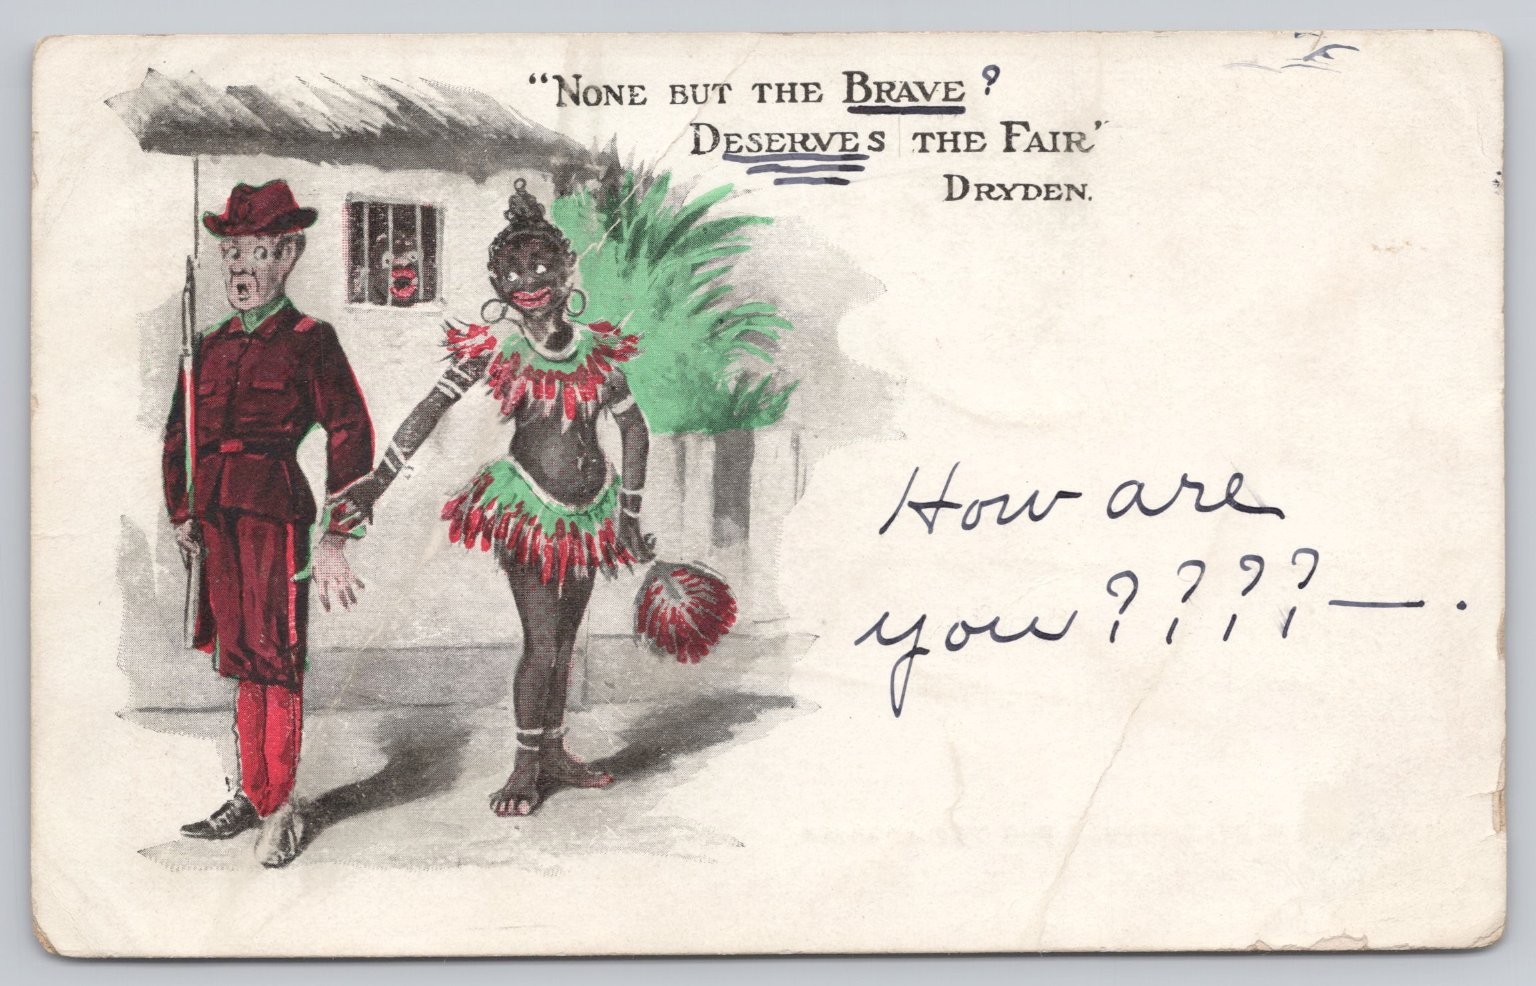 “None but the Brave ?
Deserves the Fair”
Dryden.
How are
you ? ? ? ? — .